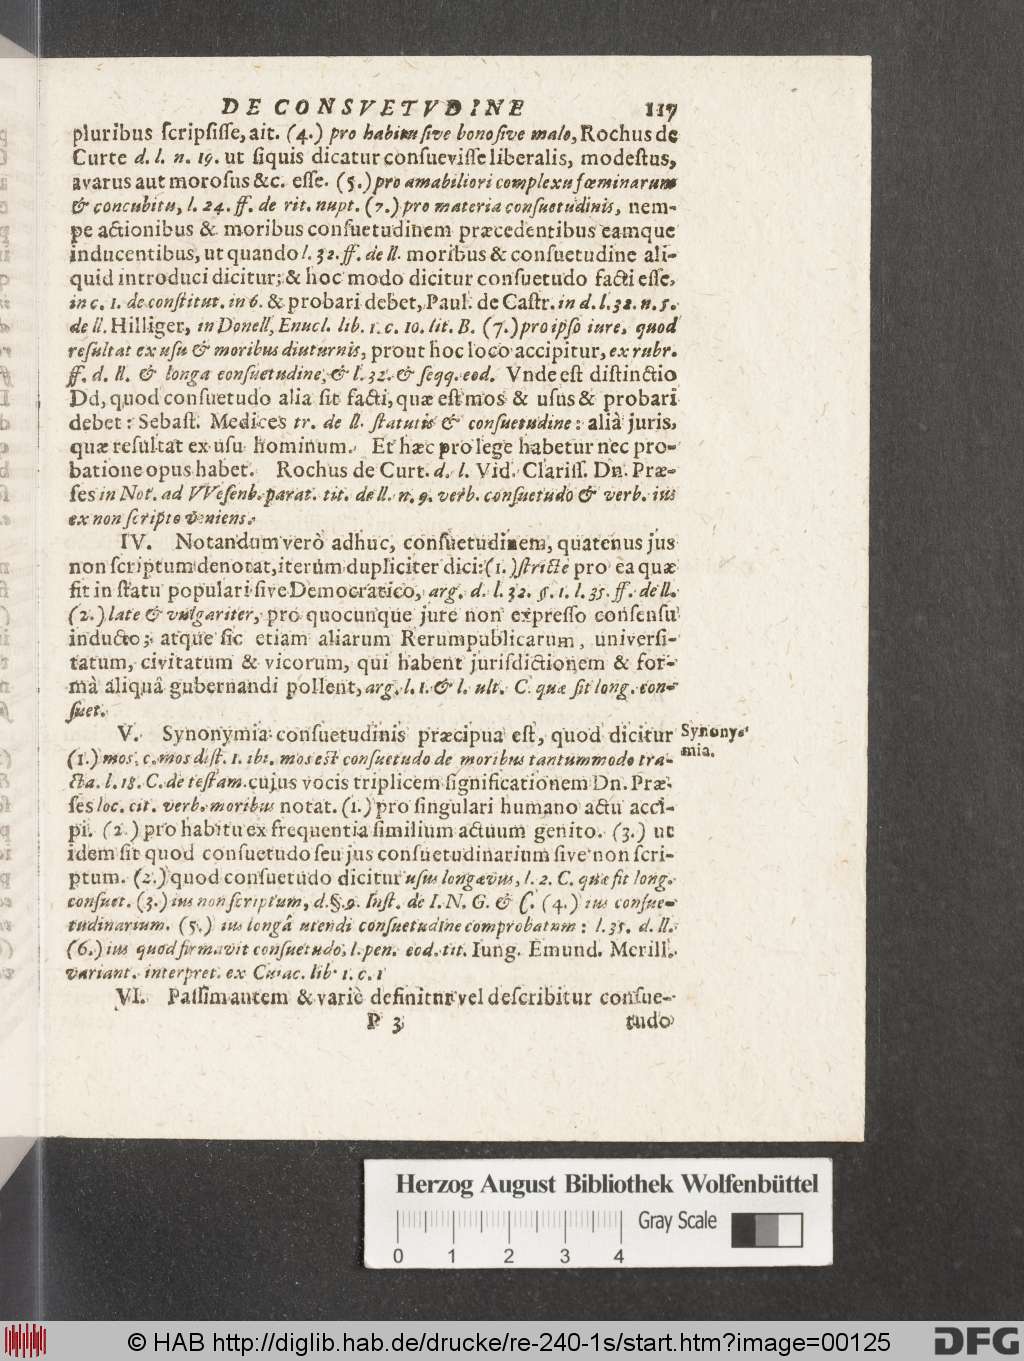 DE CONSVETVDINE 117
pluribus ſcripſiſſe, ait. (4.) pro habitu ſive bono ſive malo, Rochus de
Curte d. l. n. 19. ut ſiquis dicatur conſueviſſe liberalis, modeſtus,
avarus aut moroſus &c. eſſe. (5.) pro amabiliori complexu fœminarum
& concubitu, l. 24. ff. de rit. nupt. (7.) pro materia conſuetudinis, nem-
pe actionibus & moribus conſuetudinem præcedentibus eamque
inducentibus, ut quando l. 32. ff. de ll. moribus & conſuetudine ali-
quid introduci dicitur; & hoc modo dicitur conſuetudo facti eſſe,
in c. 1. de conſtitut. in 6. & probari debet, Paul. de Caſtr. in d. l. 32. n. 5.
de ll. Hilliger, in Donell, Enucl. lib. 1. c. 10. lit. B. (7.) pro ipſo iure, quod
reſultat ex uſu & moribus diuturnis, prout hoc loco accipitur, ex rubr.
ff. d. ll. & longa conſuetudine, & l. 32. & ſeqq. eod. Vnde eſt diſtinctio
Dd, quod conſuetudo alia ſit facti, quæ eſt mos & uſus & probari
debet: Sebaſt. Medices tr. de ll. ſtatutis & conſuetudine: alià juris,
quæ reſultat ex uſu hominum. Et hæc pro lege habetur nec pro-
batione opus habet. Rochus de Curt. d. l. Vid. Clariſſ. Dn. Præ-
ſes in Not. ad VVeſenb. parat. tit. de ll. n. 9. verb. conſuetudo & verb. ius
ex non ſcripto veniens.
IV. Notandum verò adhuc, conſuetudinem, quatenus jus
non ſcriptum denotat, iterùm dupliciter dici: (1.) ſtricte pro ea quæ
fit in ſtatu populari ſive Democratico, arg. d. l. 32. §. 1. l. 35. ff. de ll.
(2.) late & vulgariter, pro quocunque jure non expreſſo conſenſu
inducto; atque ſic etiam aliarum Rerumpublicarum, univerſi-
tatum, civitatum & vicorum, qui habent jurisdictionem & for-
mâ aliquâ gubernandi pollent, arg. l. 1. & l. ult. C. quæ ſit long. con-
ſuet.
V. Synonymia conſuetudinis præcipua eſt, quod dicitur
Synony-
mia.
(1.) mos, c. mos diſt. 1. ibi. mos eſt conſuetudo de moribus tantummodo tra-
cta. l. 18. C. de teſtam. cujus vocis triplicem ſignificationem Dn. Præ-
ſes loc. cit. verb. moribus notat. (1.) pro ſingulari humano actu acci-
pi. (2.) pro habitu ex frequentia ſimilium actuum genito. (3.) ut
idem ſit quod conſuetudo ſeu jus conſuetudinarium ſive non ſcri-
ptum. (2.) quod conſuetudo dicitur uſus longævus, l. 2. C. quæ ſit long.
conſuet. (3.) ius non ſcriptum, d. §. 9. Inſt. de I. N. G. & C. (4.) ius conſue-
tudinarium. (5.) ius longâ utendi conſuetudine comprobatum: l. 35. d. ll.
(6.) ius quod firmavit conſuetudo, l. pen. eod. tit. Iung. Emund. Merill.
variant. interpret. ex Cuiac. lib. 1. c. 1
VI. Paſſim autem & variè definitur vel deſcribitur conſue-
P 3 tudo
Herzog August Bibliothek Wolfenbüttel
Gray Scale
0 1 2 3 4
© HAB http://diglib.hab.de/drucke/re-240-1s/start.htm?image=00125
DFG